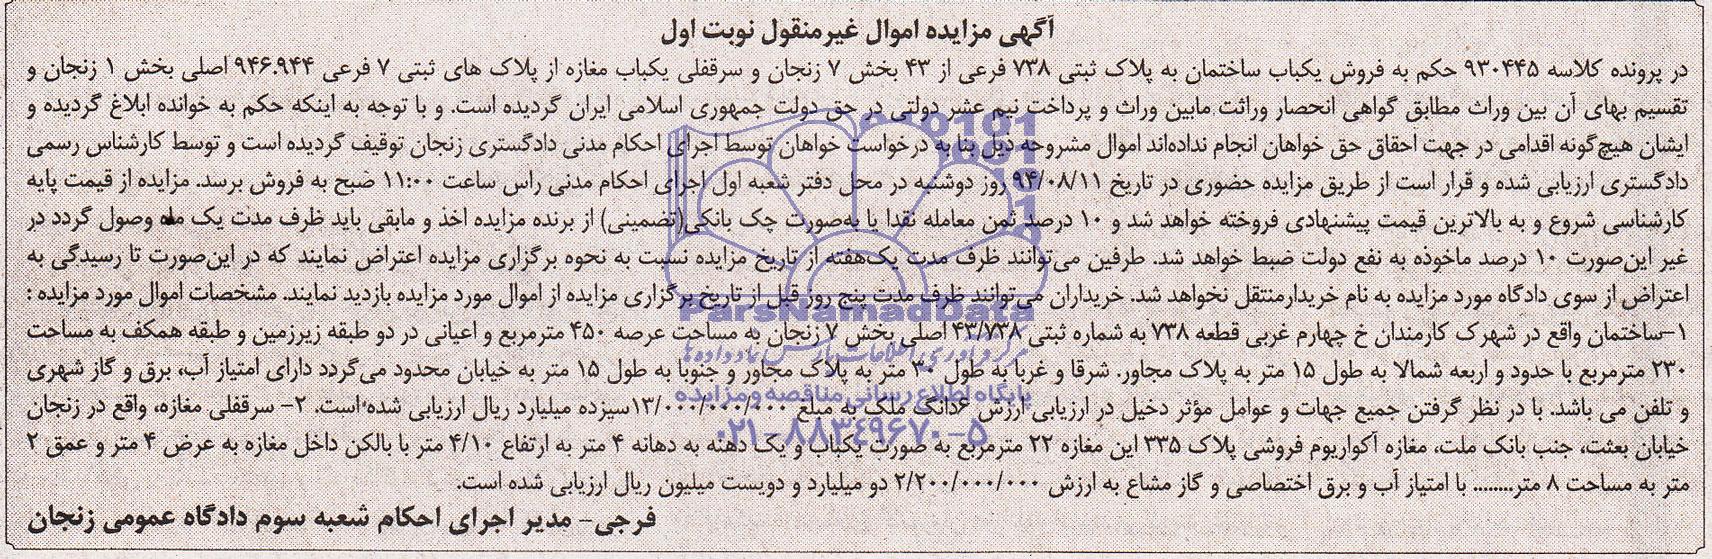 آگهی مزایده اموال غیرمنقول نوبت اول
در پرونده کلاسه ۹۳۰۴۴۵ حکم به فروش یکباب ساختمان به پلاک ثبتی ۷۳۸ فرعی از ۴۳ بخش ۷ زنجان و سرقفلی یکباب مغازه از پلاک های ثبتی ۷ فرعی ۹۴۶.۹۴۴ اصلی بخش ۱ زنجان و
تقسیم بهای آن بین وراث مطابق گواهی انحصار وراثت مابین وراث و پرداخت نیم عشر دولتی در حق دولت جمهوری اسلامی ایران گردیده است. و با توجه به اینکه حکم به خوانده ابلاغ گردیده و
ایشان هیچ‌گونه اقدامی در جهت احقاق حق خواهان انجام نداده‌اند اموال مشروحه ذیل بنا به درخواست خواهان توسط اجرای احکام مدنی دادگستری زنجان توقیف گردیده است و توسط کارشناس رسمی
دادگستری ارزیابی شده و قرار است از طریق مزایده حضوری در تاریخ ۹۴/۰۸/۱۱ روز دوشنبه در محل دفتر شعبه اول اجرای احکام مدنی راس ساعت ۱۱:۰۰ صبح به فروش برسد. مزایده از قیمت پایه
کارشناسی شروع و به بالاترین قیمت پیشنهادی فروخته خواهد شد و ۱۰ درصد ثمن معامله نقدا یا به‌صورت چک بانکی(تضمینی) از برنده مزایده اخذ و مابقی باید ظرف مدت یک ماه وصول گردد در
غیر این‌صورت ۱۰ درصد ماخوذه به نفع دولت ضبط خواهد شد. طرفین می‌توانند ظرف مدت یک‌هفته از تاریخ مزایده نسبت به نحوه برگزاری مزایده اعتراض نمایند که در این‌صورت تا رسیدگی به
اعتراض از سوی دادگاه مورد مزایده به نام خریدارمنتقل نخواهد شد. خریداران می‌توانند ظرف مدت پنج روز قبل از تاریخ برگزاری مزایده از اموال مورد مزایده بازدید نمایند. مشخصات اموال مورد مزایده :
۱-ساختمان واقع در شهرک کارمندان خ چهارم غربی قطعه ۷۳۸ به شماره ثبتی ۴۳/۷۳۸ اصلی بخش ۷ زنجان به مساحت عرصه ۴۵۰ مترمربع و اعیانی در دو طبقه زیرزمین و طبقه همکف به مساحت
۲۳۰ مترمربع با حدود و اربعه شمالا به طول ۱۵ متر به پلاک مجاور. شرقا و غربا به طول ۳۰ متر به پلاک مجاور و جنوبا به طول ۱۵ متر به خیابان محدود می‌گردد دارای امتیاز آب، برق و گاز شهری
و تلفن می باشد. با در نظر گرفتن جمیع جهات و عوامل مؤثر دخیل در ارزیابی ارزش ۶دانگ ملک به مبلغ ۱۳/۰۰۰/۰۰۰/۰۰۰سیزده میلیارد ریال ارزیابی شده است. ۲- سرقفلی مغازه، واقع در زنجان
خیابان بعثت، جنب بانک ملت، مغازه آکواریوم فروشی پلاک ۳۳۵ این مغازه ۲۲ مترمربع به صورت یکباب و یک دهنه به دهانه ۴ متر به ارتفاع ۴/۱۰ متر با بالکن داخل مغازه به عرض ۴ متر و عمق ۲
متر به مساحت ۸ متر........ با امتیاز آب و برق اختصاصی و گاز مشاع به ارزش ۲/۲۰۰/۰۰۰/۰۰۰ دو میلیارد و دویست میلیون ریال ارزیابی شده است.
فرجی- مدیر اجرای احکام شعبه سوم دادگاه عمومی زنجان
ParsNamadData
مرکز فرآوری اطلاعات پارس نماد داده ها
پایگاه اطلاع رسانی مناقصه و مزایده
۰۲۱-۸۸۳۴۹۶۷۰-۵